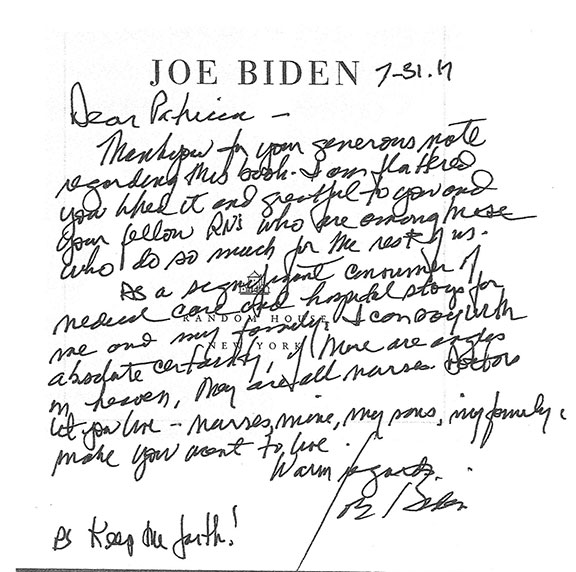 JOE BIDEN 7-31-17
Dear Patricia -
Thankyou for your generous note
regarding this book. I am flattered
you liked it and grateful to you and
your fellow RN's who are among those
who do so much for the rest of us.
As a significant consumer of
medical care and hospital stays for
RANDOM HOUSE
me and my family, I can say with
NEW YORK
absolute certainty, if there are angles
in heaven, they are all nurses. Doctors
let you live - nurses, mine, my sons, my family,
make you want to live.
Warm regards.
Joe Biden
PS Keep the faith!